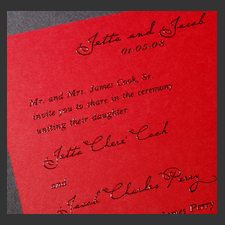 Jetta and Jacob
01.05.08
Mr. and Mrs. James Cook, Sr.
invite you to share in the ceremony
uniting their daughter
Jetta Cheré Cook
and
Jacob Charles Perry
James Perry